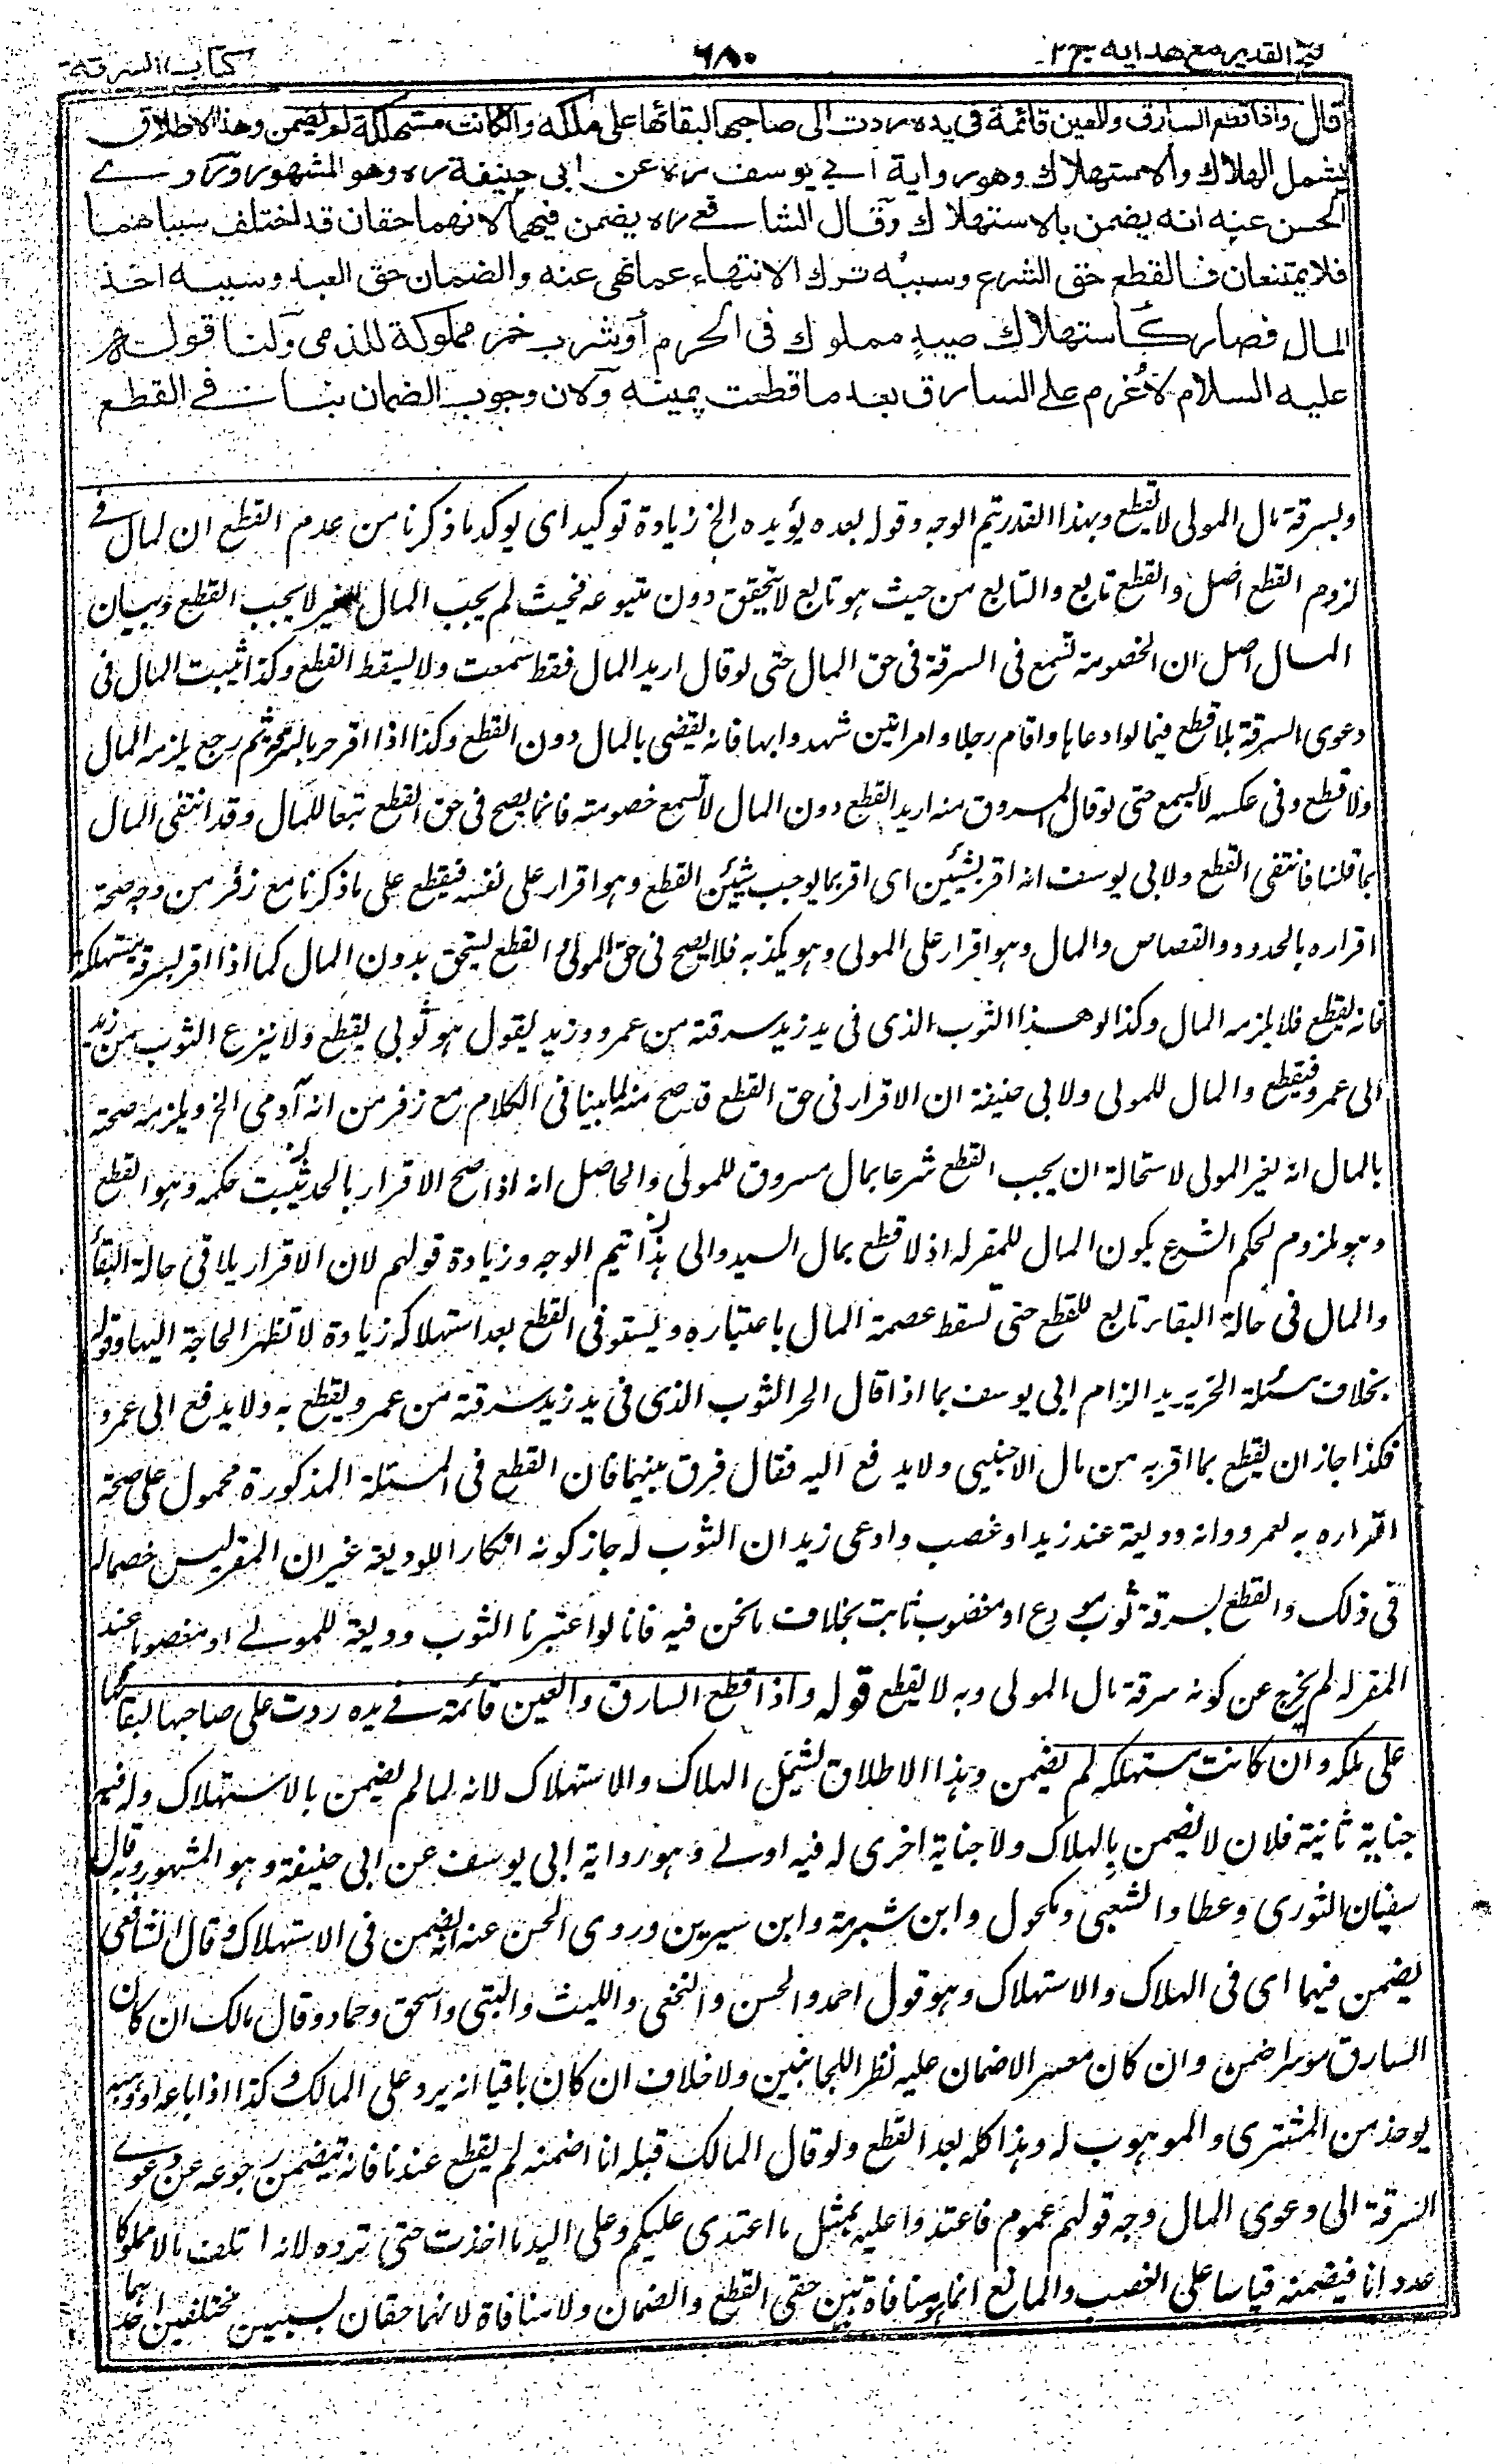 فتح القدير مع هدايه ج ٢
٦٨٠
كتاب السرقة
قال واذا قطع السارق والعين قائمة في يده ردت الى صاحبها لبقائها على ملكه وان كانت مستهلكة لم يضمن وهذا الاطلاق
يشمل الهلاك والاستهلاك وهو رواية ابي يوسف رح عن ابي حنيفة رح وهو المشهور وروى
الحسن عنه انه يضمن بالاستهلاك وقال الشافعي رح يضمن فيهما لانهما حقان قد اختلف سبباهما
فلا يمتنعان فالقطع حق الشرع وسببه ترك الانتهاء عما نهى عنه والضمان حق العبد وسببه اخذ
المال فصار كاستهلاك صيد مملوك في الحرم او شرب خمر مملوكة للذمي ولنا قوله
عليه السلام لا غرم على السارق بعد ما قطعت يمينه ولان وجوب الضمان ينافي القطع
وبسرقة مال المولى لا يقطع وبهذا القدر يتم الوجه وقوله بعده يؤيده الخ زيادة توكيد اى يوكد ما ذكرنا من عدم القطع ان المال في
لزوم القطع اصل والقطع تابع والتابع من حيث هو تابع لا يتحقق دون متبوعه فحيث لم يجب المال للغير لا يجب القطع وبيان
المال اصل ان الخصومة تسمع فى السرقة فى حق المال حتى لو قال اريد المال فقط سمعت ولا يسقط القطع وكذا يثبت المال فى
دعوى السرقة بلا قطع فيما لو ادعاها واقام رجلا وامراتين شهدوا بها فانه يقضى بالمال دون القطع وكذا اذا اقر حر بالسرقة ثم رجع يلزمه المال
ولا قطع وفى عكسه لا يسمع حتى لو قال المسروق منه اريد القطع دون المال لا تسمع خصومته فانما يصح فى حق القطع تبعا للمال وقد انتفى المال
بما قلنا فانتفى القطع ولابى يوسف انه اقر بشيئين اى اقر بما يوجب شيئين القطع وهو اقرار على نفسه فيقطع على ما ذكرنا مع زفر من وجه صحة
اقراره بالحدود والقصاص والمال وهو اقرار على المولى وهو يكذبه فلا يصح فى حق المولى والقطع يستحق بدون المال كما اذا اقر بسرقة مستهلكة
فانه يقطع فلا يلزمه المال وكذا لو هذا الثوب الذى فى يد زيد سرقته من عمرو وزيد يقول هو ثوبى يقطع ولا ينزع الثوب من زيد
الى عمرو فيقطع والمال للمولى ولابى حنيفة ان الاقرار فى حق القطع قد صح منه لما بينا فى الكلام مع زفر من انه آدمى الخ ويلزمه صحته
بالمال انه لغير المولى لاستحالة ان يجب القطع شرعا بمال مسروق للمولى والحاصل انه اذا صح الاقرار بالحد يثبت حكمه وهو القطع
وهو ملزوم لحكم الشرع بكون المال للمقر له اذ لا قطع بمال السيد والى هذا يتم الوجه وزيادة قولهم لان الاقرار يلاقى حالة البقاء
والمال فى حالة البقاء تابع للقطع حتى تسقط عصمة المال باعتباره ويستوفى القطع بعد استهلاكه زيادة لا تظهر الحاجة اليها وقوله
بخلاف مسئلة الحر يريد الزام ابى يوسف بما اذا قال الحر الثوب الذى فى يد زيد سرقته من عمرو يقطع به ولا يدفع الى عمرو
فكذا جاز ان يقطع بما اقر به من مال الاجنبى ولا يدفع اليه فقال فرق بينهما فان القطع فى المسئلة المذكورة محمول على صحة
اقراره به لعمرو وانه وديعة عند زيد او غصب وادعى زيد ان الثوب له جاز كونه انكارا للوديعة غير ان المقر ليس خصما له
فى ذلك والقطع بسرقة ثوب مودع او مغصوب ثابت بخلاف ما نحن فيه فانا لو اعتبرنا الثوب وديعة للمولى او مغصوبا عند
المقر له لم يخرج عن كونه سرقة مال المولى وبه لا يقطع قوله واذا قطع السارق والعين قائمة فى يده ردت على صاحبها لبقائها
على ملكه وان كانت مستهلكة لم يضمن وهذا الاطلاق يشمل الهلاك والاستهلاك لانه لما لم يضمن بالاستهلاك وله فيه
جناية ثانية فلان لا يضمن بالهلاك ولا جناية اخرى له فيه اولى وهو رواية ابى يوسف عن ابى حنيفة وهو المشهور وبه قال
سفيان الثورى وعطا والشعبى ومكحول وابن شبرمة وابن سيرين وروى الحسن عنه انه يضمن فى الاستهلاك وقال الشافعى
يضمن فيهما اى فى الهلاك والاستهلاك وهو قول احمد والحسن والنخعى والليث والبتى واسحق وحماد وقال مالك ان كان
السارق موسرا ضمن وان كان معسرا لا ضمان عليه نظرا للجانبين ولا خلاف ان كان باقيا انه يرد على المالك وكذا اذا باعه او وهبه
يوخذ من المشترى والموهوب له وهذا كله بعد القطع ولو قال المالك قبله انا اضمنه لم يقطع عندنا فانه يتضمن رجوعه عن دعوى
السرقة الى دعوى المال وجه قولهم عموم فاعتدوا عليه بمثل ما اعتدى عليكم وعلى اليد ما اخذت حتى ترده لانه اتلف مالا مملوكا
عدوانا فيضمنه قياسا على الغصب والمانع انما هو منافاة بين حقى القطع والضمان ولا منافاة لانهما حقان بسببين مختلفين احدهما